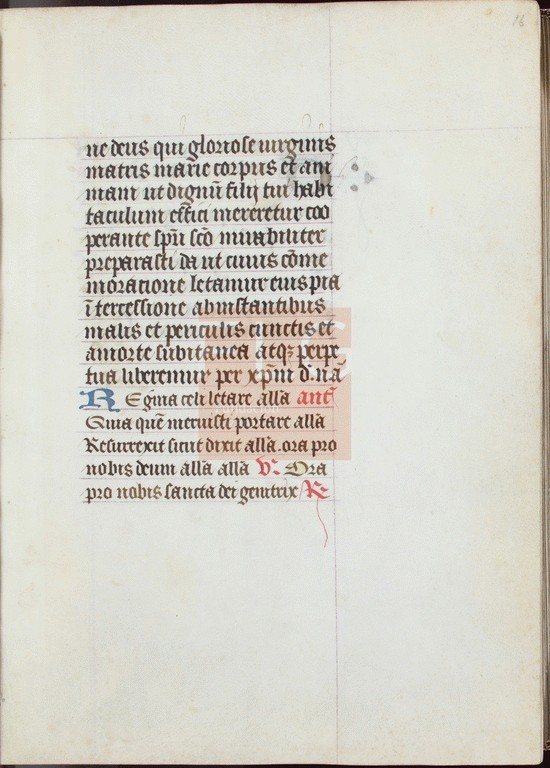 16
ne deus qui gloriose uirginis
matris marie corpus et ani
mam ut dignū filij tui habi
taculum effici mereretur coo
perante spū sc̄o mirabiliter
preparasti da ut cuius cōme
moratione letamur eius pia
ītercessione ab instantibus
malis et periculis cunctis et
a morte subitanea atqꝫ perpe
tua liberemur per xp̄m d. nā
Regina celi letare all'a ant'
Quia quē meruisti portare all'a
Resurrexit sicut dixit all'a. ora pro
nobis deum all'a all'a V'. Ora
pro nobis sancta dei genitrix R'